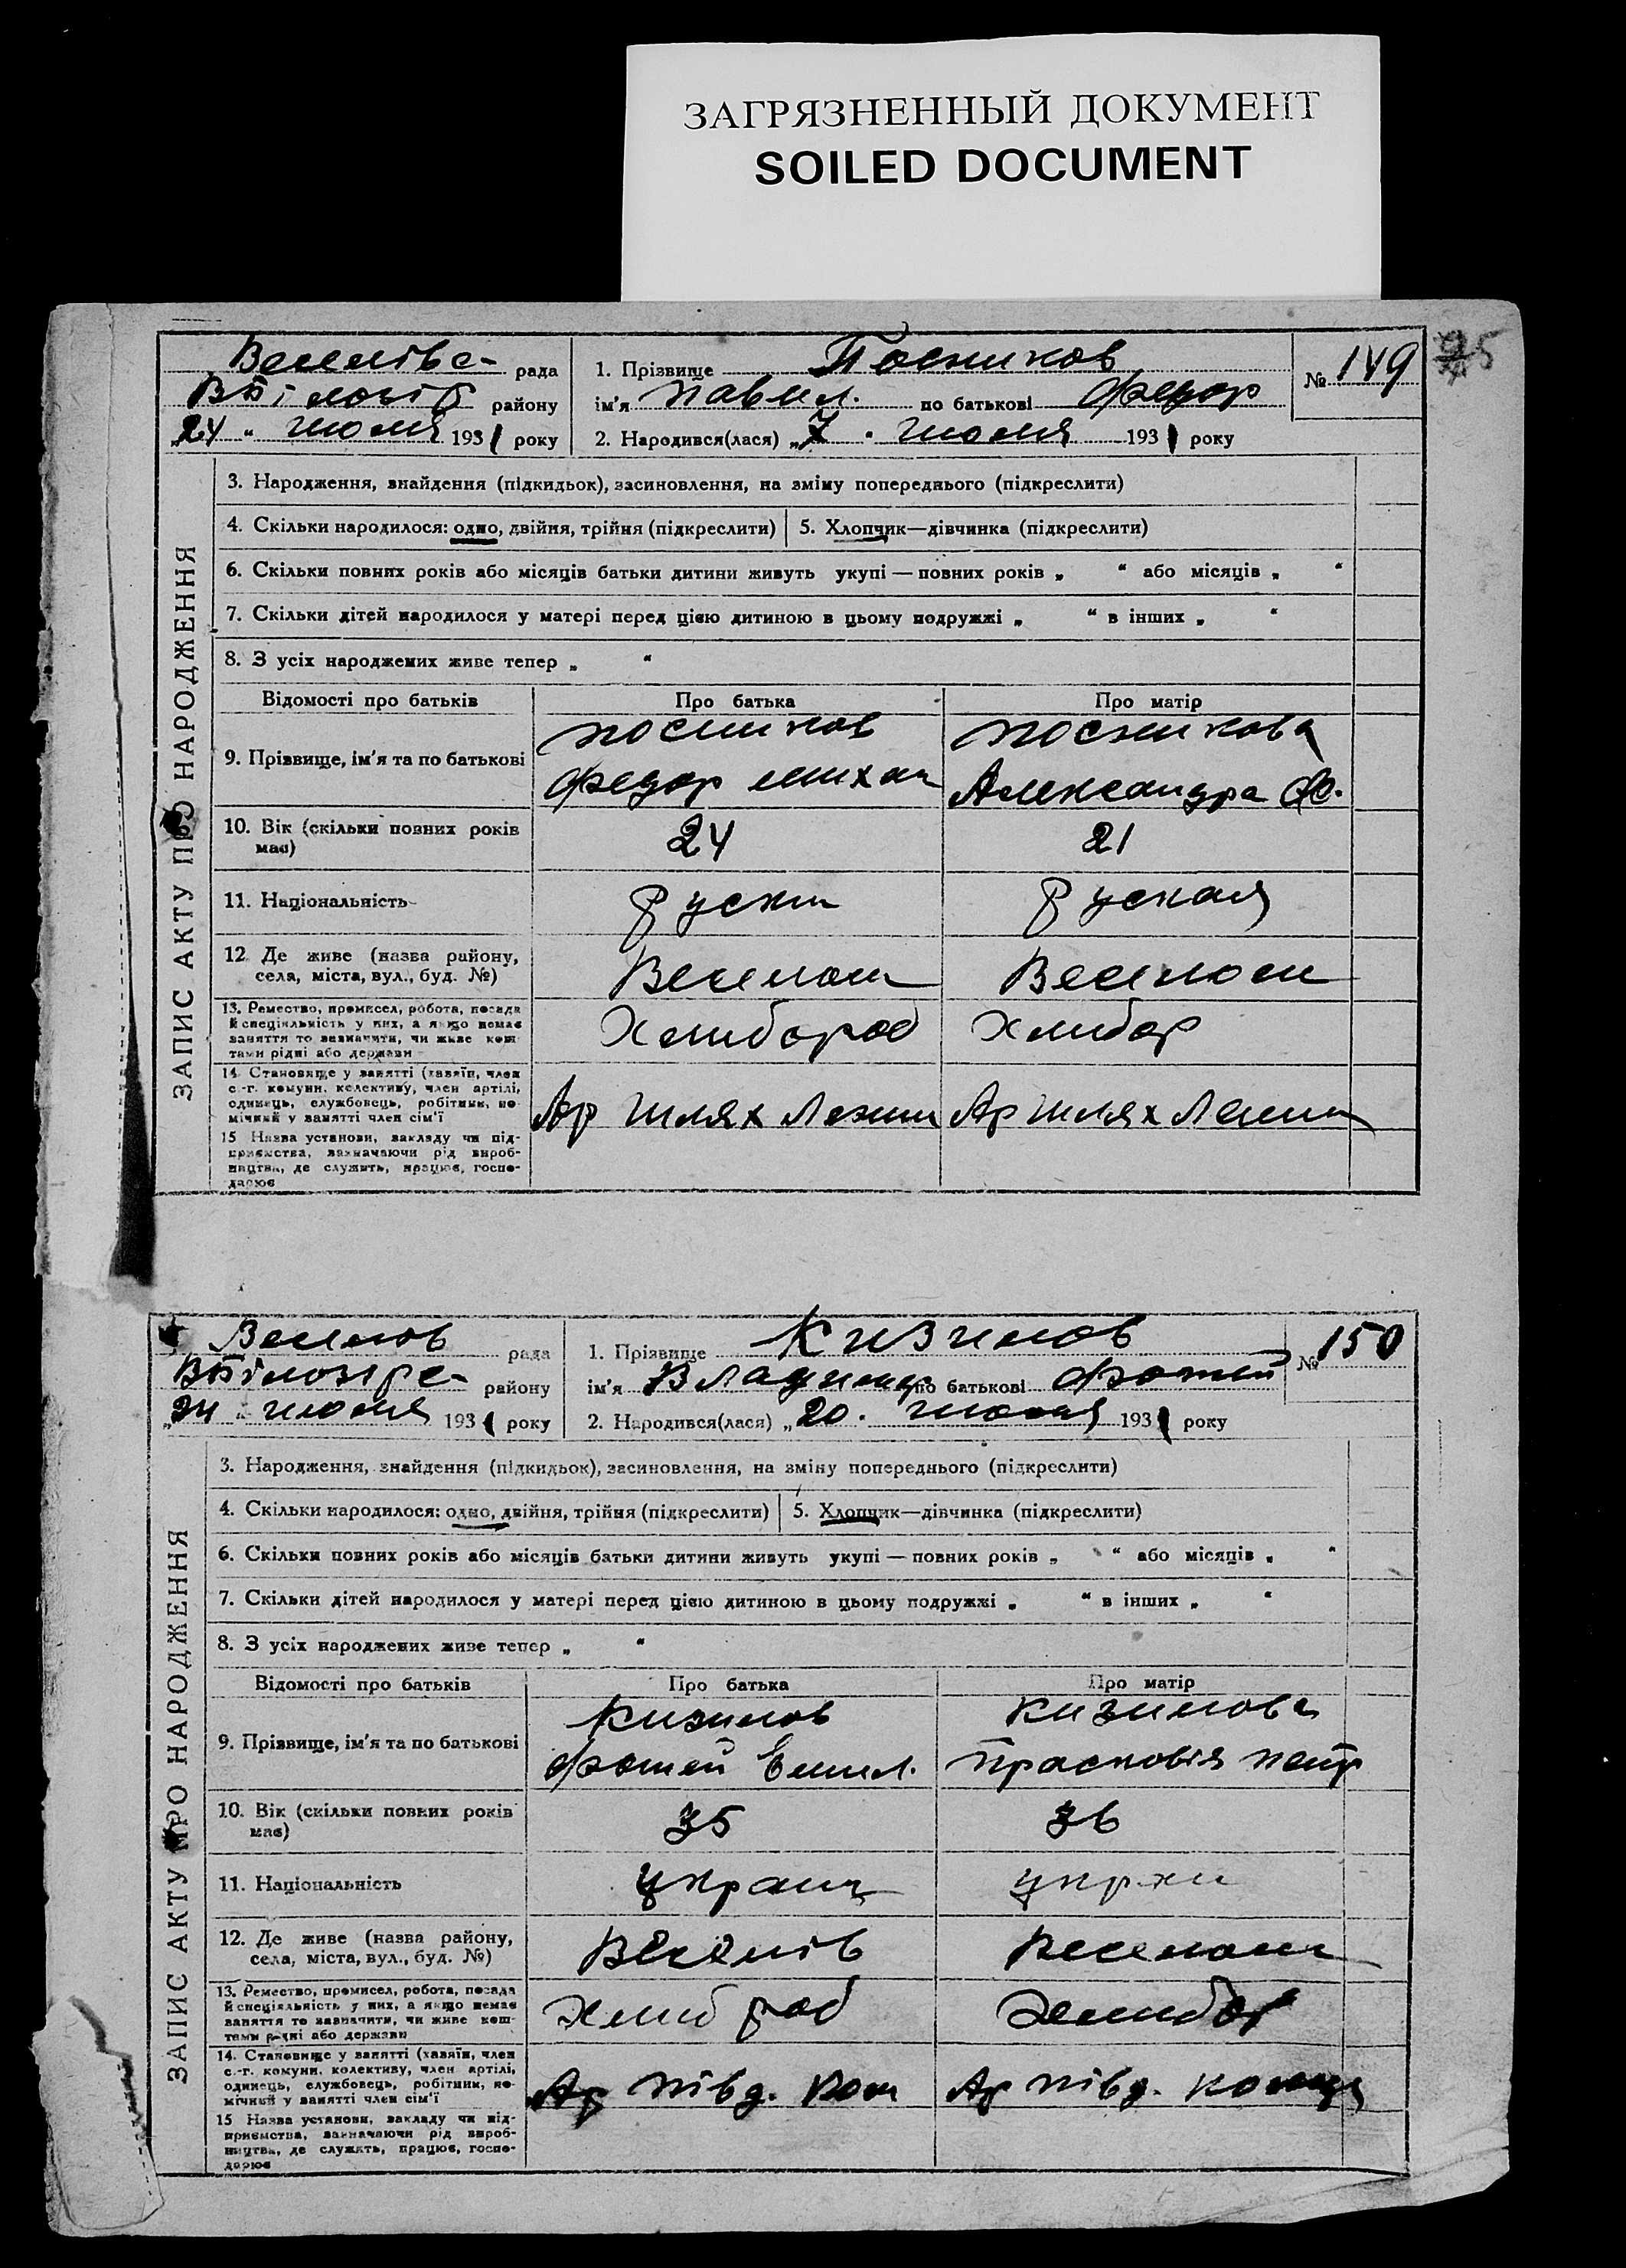 ЗАГРЯЗНЕННЫЙ ДОКУМЕНТ
SOILED DOCUMENT
75
Веселівс- рада
району
24 " июля 1931 року
1. Прізвище Посников
ім'я Павел. по батькові Федор
2. Народився(лася) „7 . июля 1931 року
№ 149
ЗАПИС АКТУ ПРО НАРОДЖЕННЯ
3. Народження, знайдення (підкидьок), засиновлення, на зміну попереднього (підкреслити)
4. Скільки народилося: одно, двійня, трійня (підкреслити) 5. Хлопчик—дівчинка (підкреслити)
6. Скільки повних років або місяців батьки дитини живуть укупі — повних років „ “ або місяців „ “
7. Скільки дітей народилося у матері перед цією дитиною в цьому подружжі „ “ в інших „ “
8. З усіх народжених живе тепер „ “
Відомості про батьків Про батька Про матір
9. Прізвище, ім'я та по батькові
Посников
Федор Михаи
Посникова
Александра Ф.
10. Вік (скільки повних років має) 24 21
11. Національність руски руская
12 Де живе (назва району,
села, міста, вул., буд. №)
Веселош Веселош
13. Ремество, промисел, робота, посада
й спеціяльність у них, а якщо немає
заняття то зазначити, чи живе кош-
тами рідні або держави
Хлибороб Хлибор
14 Становище у занятті (хазяїн, член
с.-г. комуни, колективу, член артілі,
одинець, службовець, робітник, по-
мічний у занятті член сім'ї
Ар шлях Ленин Ар шлях Ленин
15 Назва установи, закладу чи під-
приємства, зазначаючи рід вироб-
ництва, де служить, працює, госпо-
дарює
Веселов рада
Білозірс- району
„24 " июля 1931 року
1. Прізвище Кизимов
ім'я Владимир по батькові Фотий
2. Народився(лася) „20. июля 1931 року
№ 150
ЗАПИС АКТУ ПРО НАРОДЖЕННЯ
3. Народження, знайдення (підкидьок), засиновлення, на зміну попереднього (підкреслити)
4. Скільки народилося: одно, двійня, трійня (підкреслити) 5. Хлопчик—дівчинка (підкреслити)
6. Скільки повних років або місяців батьки дитини живуть укупі — повних років „ “ або місяців „ “
7. Скільки дітей народилося у матері перед цією дитиною в цьому подружжі „ “ в інших „ “
8. З усіх народжених живе тепер „ “
Відомості про батьків Про батька Про матір
9. Прізвище, ім'я та по батькові
Кизимов
Фотий Емил.
Кизимова
Прасковія Петр
10. Вік (скільки повних років має) 35 36
11. Національність украин укрхи
12. Де живе (назва району,
села, міста, вул., буд. №)
Веселів Веселош
13. Ремество, промисел, робота, посада
й спеціяльність у них, а якщо немає
заняття то зазначити, чи живе кош-
тами рідні або держави
Хлиб роб Хлибор
14. Становище у занятті (хазяїн, член
с.-г. комуни, колективу, член артілі,
одинець, службовець, робітник, по-
мічний у занятті член сім'ї
Ар Півд. Ком Ар Півд.
15 Назва установи, закладу чи під-
приємства, зазначаючи рід вироб-
ництва, де служить, працює, госпо-
дарює